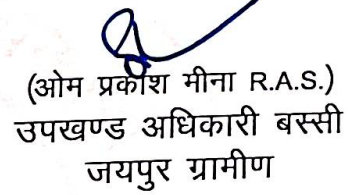 (ओम प्रकाश मीना R.A.S.)
उपखण्ड अधिकारी बस्सी
जयपुर ग्रामीण